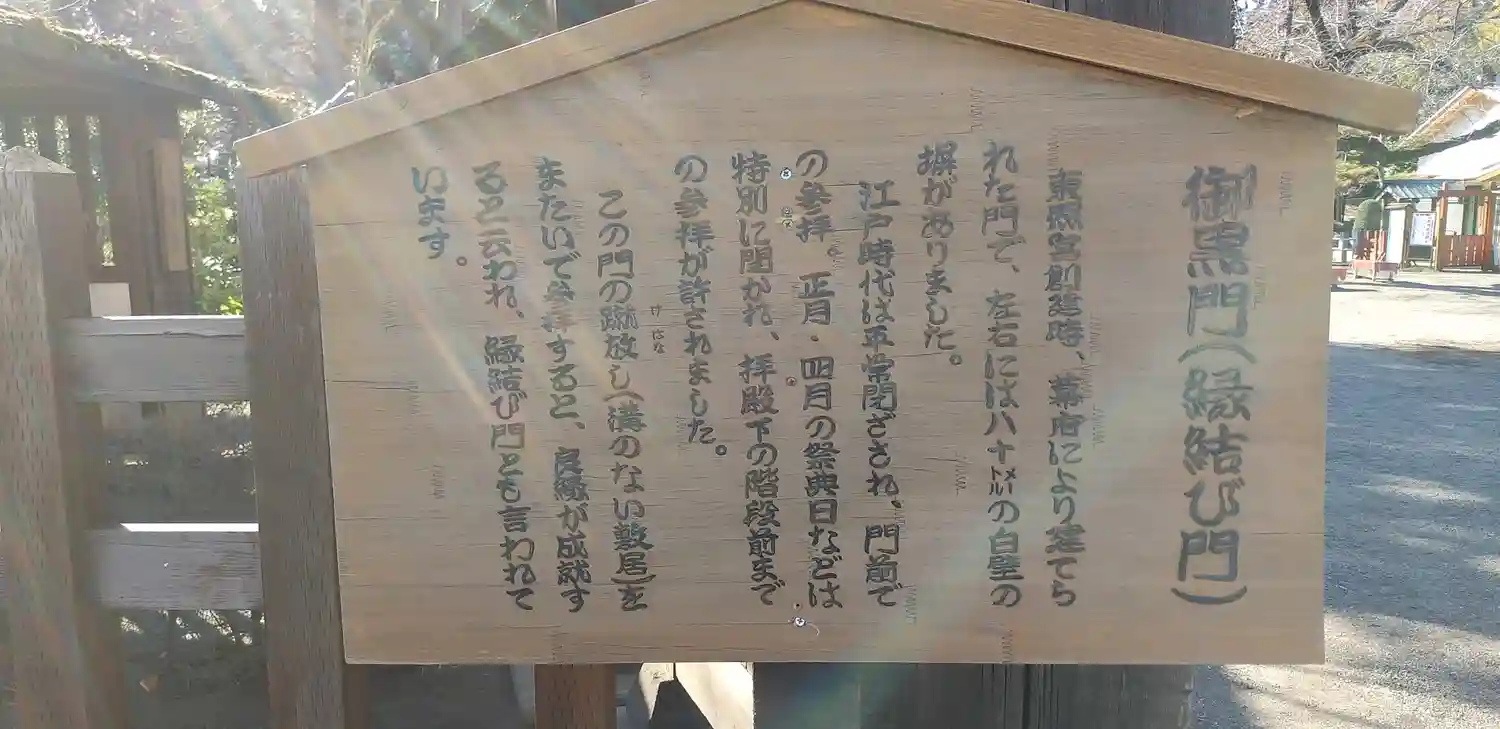 御黒門(縁結び門)
東照宮創建時、幕府により建てら
れた門で、左右には八十㍍の白壁の
塀がありました。
江戸時代は平常閉ざされ、門前で
の参拝。正月・四月の祭典日などは
特別に開かれ、拝殿下の階段前まで
の参拝が許されました。
この門の蹴放し(溝のない敷居)を
けはな
またいで参拝すると、良縁が成就す
ると云われ、縁結び門とも言われて
います。